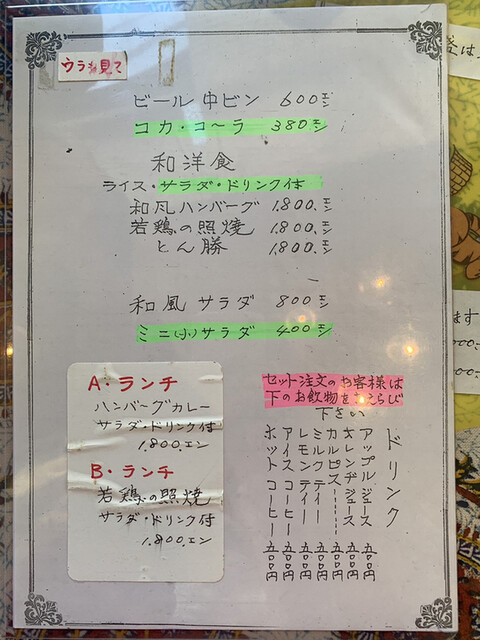 ウラも見て
ビール 中ビン 600エン
コカ・コーラ 380エン
和洋食
ライス・サラダ・ドリンク付
和風ハンバーグ 1,800.エン
若鶏の照焼 1,800.エン
とん勝 1,800.エン
和風サラダ 800エン
ミニ(小)サラダ 400エン
A・ランチ
ハンバーグカレー
サラダ・ドリンク付
1,800.エン
B・ランチ
若鶏の照焼
サラダ・ドリンク付
1,800.エン
セット注文のお客様は
下のお飲物をえらび
下さい
ドリンク
アップルジュース 五〇〇円
オレンヂジュース 五〇〇円
カルピス 五〇〇円
ミルクティー 五〇〇円
レモンティー 五〇〇円
アイスコーヒー 五〇〇円
ホットコーヒー 五〇〇円